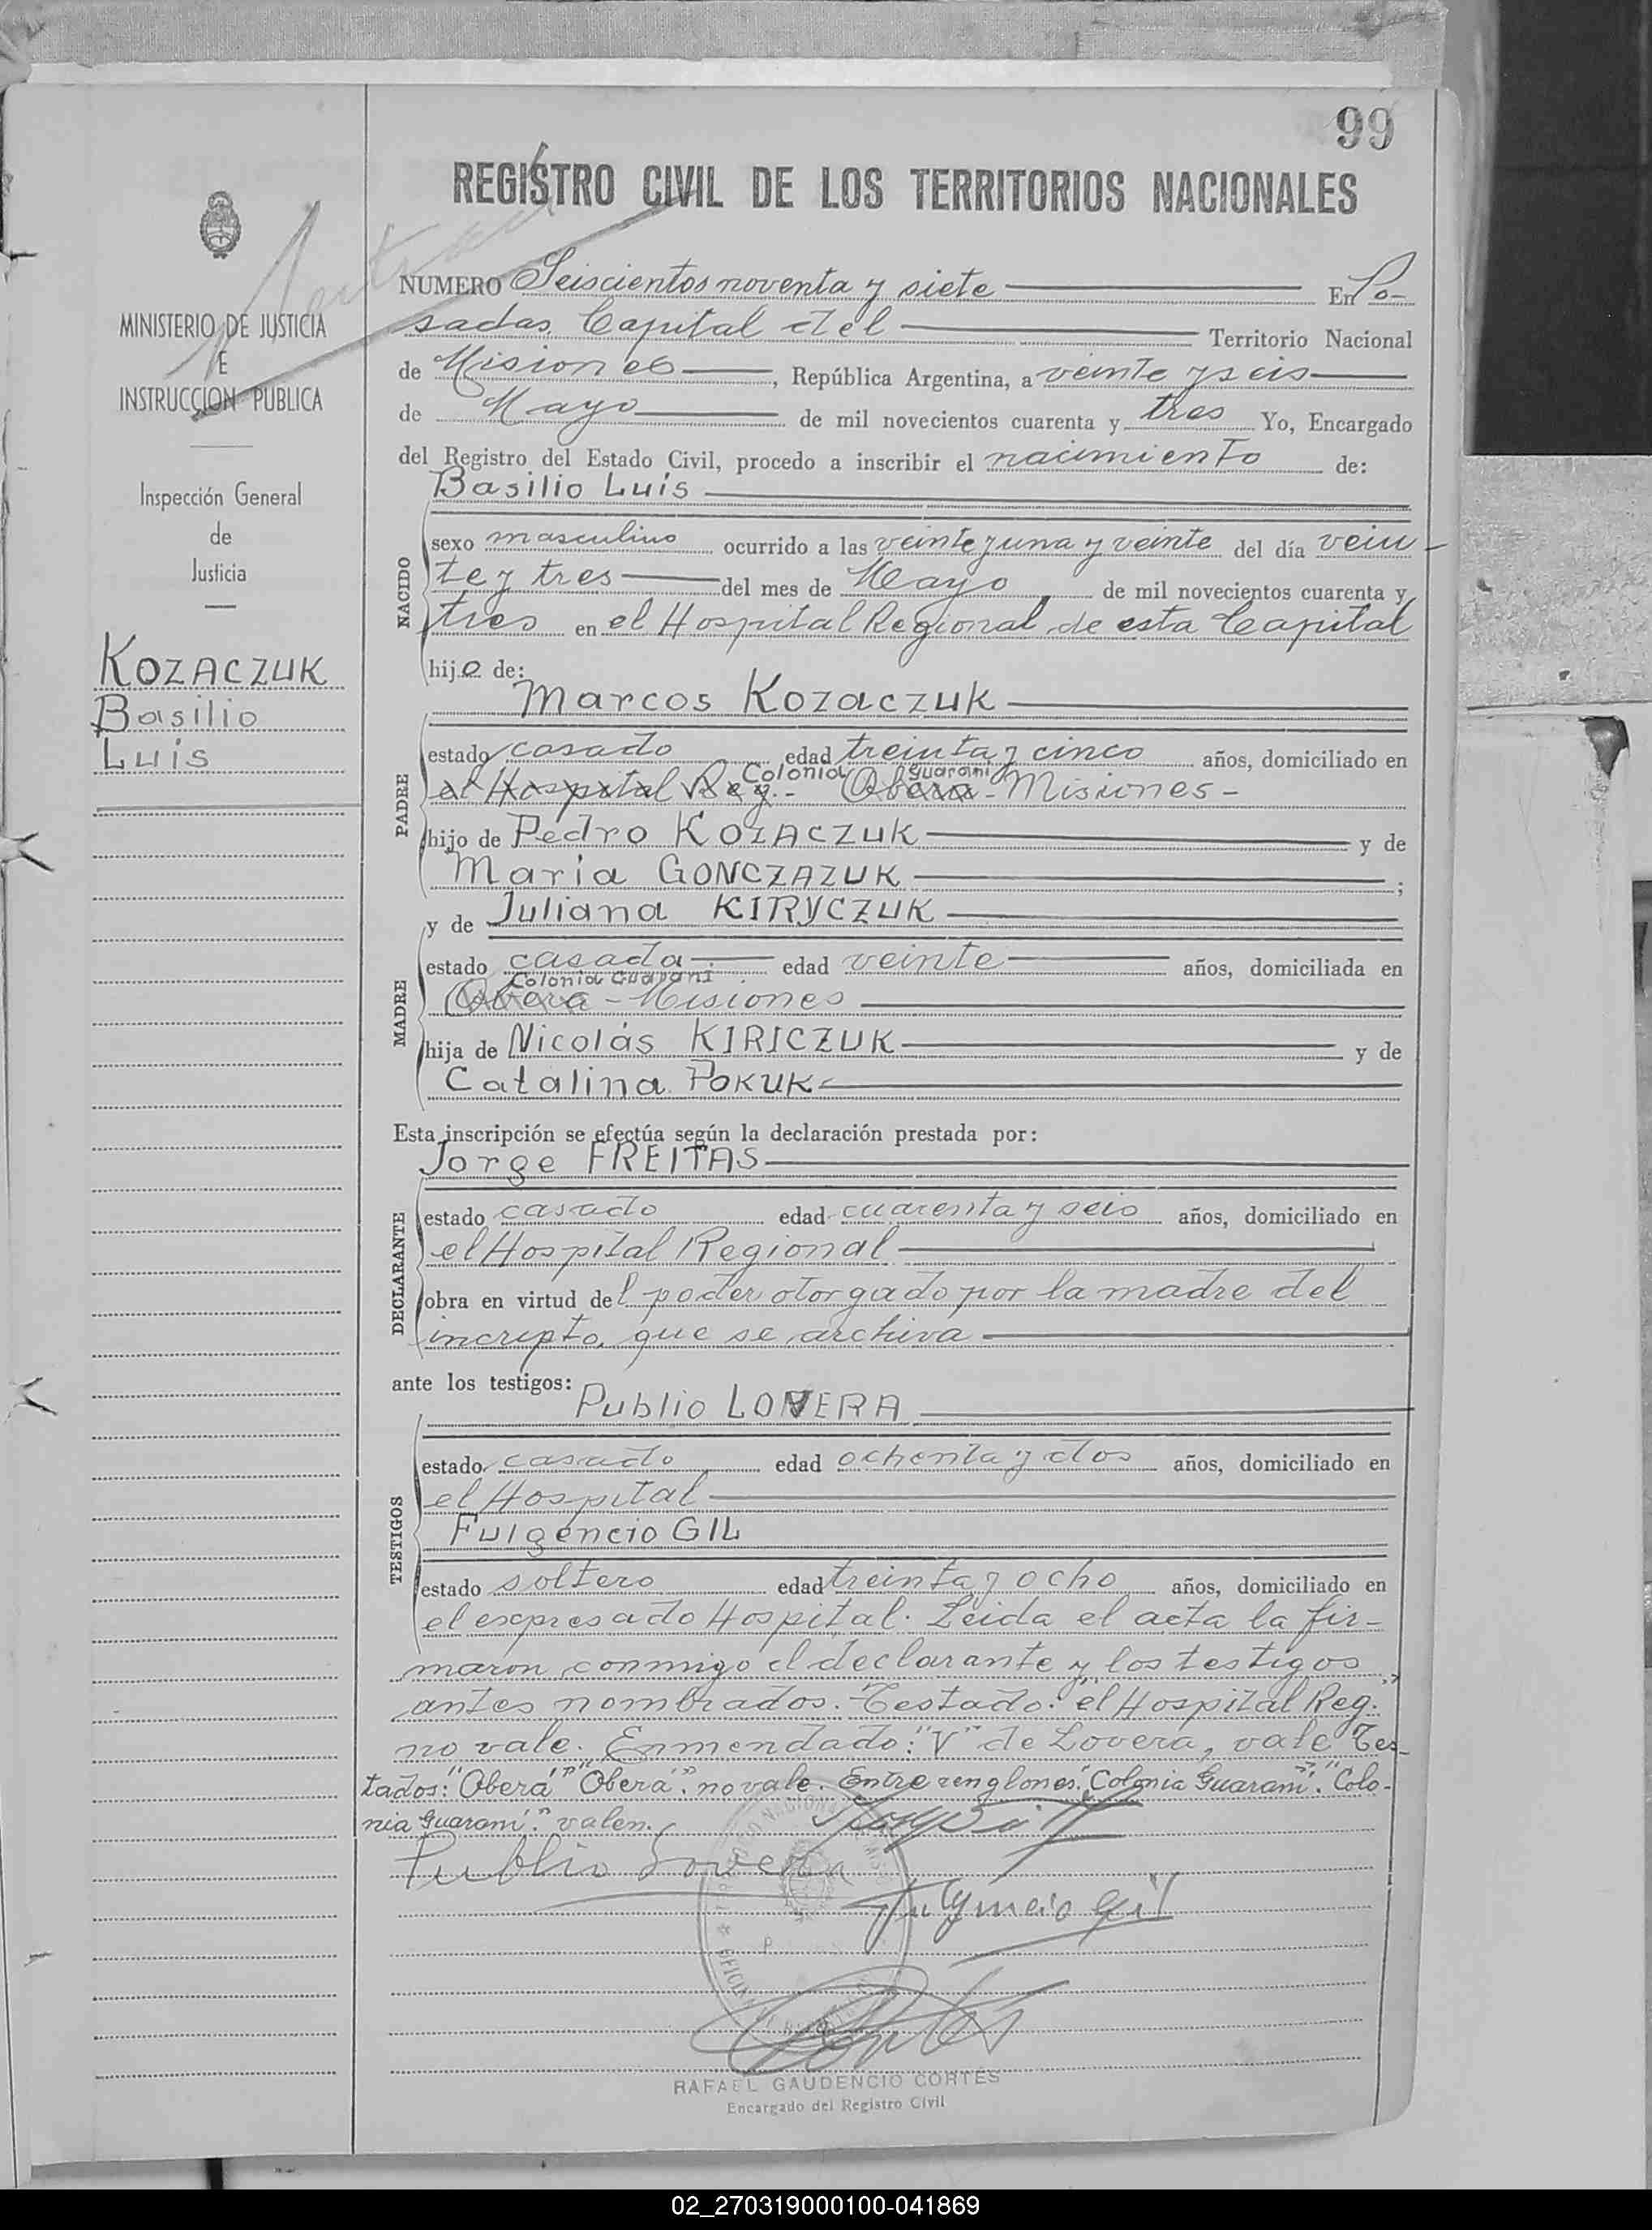 99
REGISTRO CIVIL DE LOS TERRITORIOS NACIONALES
MINISTERIO DE JUSTICIA
E
INSTRUCCION PUBLICA
Inspección General
de
Justicia
KOZACZUK
Basilio
Luis
NUMERO Seiscientos noventa y siete En Po-
sadas, Capital del Territorio Nacional
de Misiones, República Argentina, a veinte y seis
de Mayo de mil novecientos cuarenta y tres Yo, Encargado
del Registro del Estado Civil, procedo a inscribir el nacimiento de:
Basilio Luis
NACIDO
sexo masculino ocurrido a las veinte y una y veinte del día vein-
te y tres del mes de Mayo de mil novecientos cuarenta y
tres en el Hospital Regional de esta Capital
hijo de:
Marcos Kozaczuk
PADRE
estado casado edad treinta y cinco años, domiciliado en
Colonia Guaraní
el Hospital Reg.- Oberá - Misiones-
hijo de Pedro KOZACZUK y de
María GONCZAZUK ;
y de Juliana KIRYCZUK
MADRE
estado casada edad veinte años, domiciliada en
Colonia Guaraní
Oberá - Misiones
hija de Nicolás KIRICZUK y de
Catalina POKUK
Esta inscripción se efectúa según la declaración prestada por:
Jorge FREITAS
DECLARANTE
estado casado edad cuarenta y seis años, domiciliado en
el Hospital Regional
obra en virtud del poder otorgado por la madre del
incripto, que se archiva
ante los testigos:
Publio LOVERA
TESTIGOS
estado casado edad ochenta y dos años, domiciliado en
el Hospital
Fulgencio GIL
estado soltero edad treinta y ocho años, domiciliado en
el expresado Hospital. Leida el acta la fir-
maron conmigo el declarante y los testigos
antes nombrados. Testado: "el Hospital Reg."
no vale. Enmendado: "V" de Lovera, vale Tes-
tados: "Oberá" "Oberá". no vale. Entre renglones. "Colonia Guaraní". "Colo-
nia Guaraní". valen.
Publio Lovera
Fulgencio Gil
RAFAEL GAUDENCIO CORTÉS
Encargado del Registro Civil
02_270319000100-041869